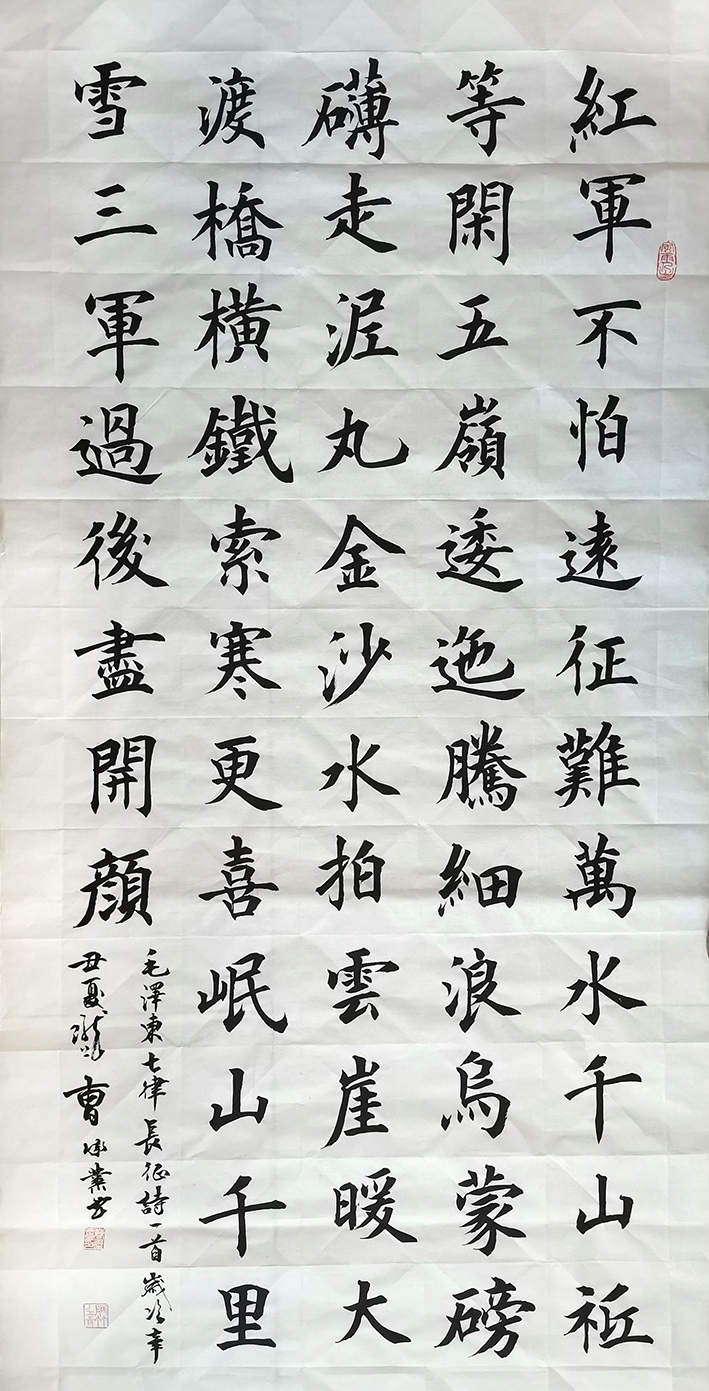 紅軍不怕遠征難萬水千山祗
等閑五嶺逶迤騰細浪烏蒙磅
礴走泥丸金沙水拍雲崖暖大
渡橋橫鐵索寒更喜岷山千里
雪三軍過後盡開顏
毛澤東七律長征詩一首歲次辛
丑夏曹承業書